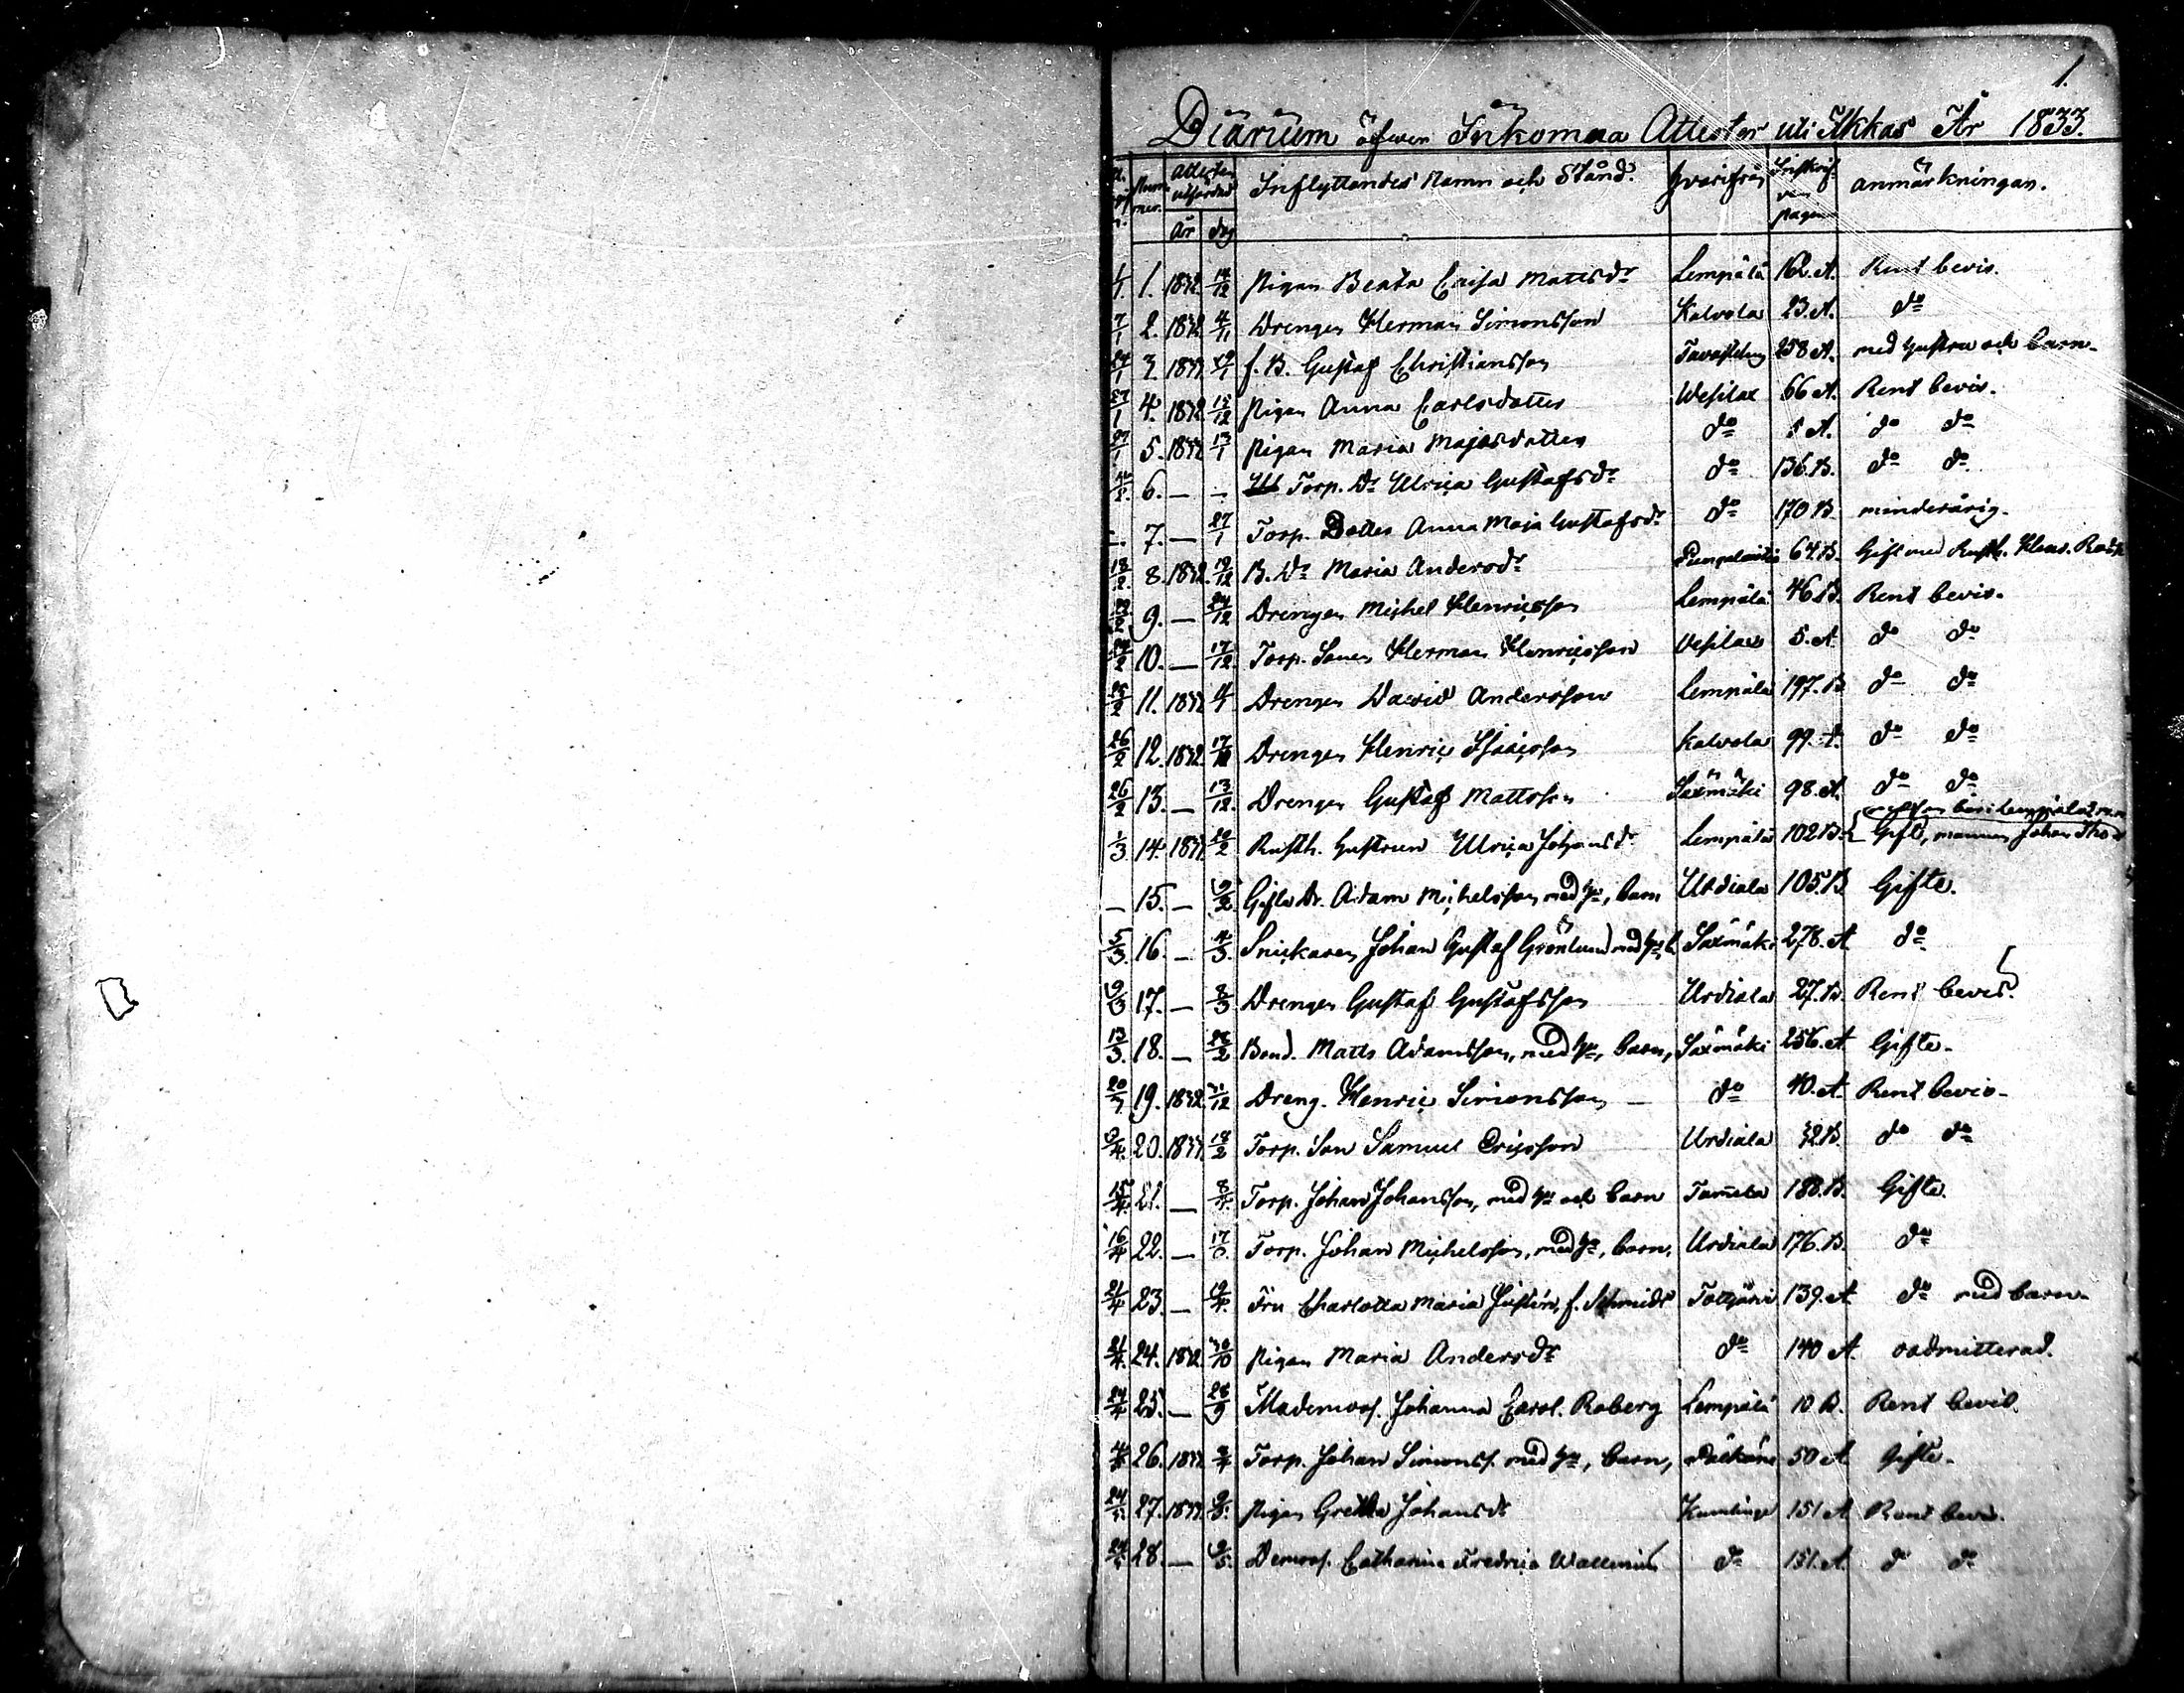 1.
Diarium öfwer Inkomna Attester uti Akkas År 1833.
Num mer. Attesten utfärdad År dag Inflyttandes Namn och Stånd. Hvarifrån Inskrifven pagina anmärkningar.
1/1. 1. 1832 14/12 Pigan Beata Caisa Mattsdr Lempälä 162.A. Rent bevis.
7/1 2. 1832 4/11 Drengen Herman Simonsson Kalvola 23.A. do
24/1 3. 1833 19/1 f.B. Gustaf Christiansson Tavastehus 258 A. med hustru och barn.
27/1 4. 1832 15/12 Pigan Anna Carlsdotter Wesilax 66 A. Rent bevis.
27/1 5. 1833 13/1 Pigan Maria Majasdotter do 5 A. do do
4/2. 6. — — Torp. Dr Ulrica Gustafsdr do 136.B. do do
—. 7. — 27/1 Torp. Dotter Anna Maja Gustafsdr do 170 B. minderårig.
18/2. 8. 1832. 19/12 B. Dr Maria Andersdr 64.B. Gift med Rusth. Henr.
22/2 9. — 24/12 Drengen Michel Henricsson Lempälä 46.B. Rent bevis.
24/2 10. — 17/12. Torp. Sonen Herman Henricsson Vesilax 5.A. do do
25/2 11. 1833 4/1 Drengen David Andersson Lempälä 197.B do do
26/2 12. 1832 17/11 Drengen Henric Isaacsson Kalvola 99.A. do do
26/2 13. — 13/12. Drengen Gustaf Mattsson Säxmäki 98.A. do do
1/3 14. 1833 20/2 Rusth. Hustrun Ulrica Johansdr Lempälä 102.B. Gift, mannen Johan
— 15. — 9/2. Gifte Dr. Adam Michelsson med hu, barn Urdiala 105.B Gifte.
5/3. 16. — 4/3. Snickaren Johan Gustaf Grönlund med hu, b. Säxmäki 278.A do
9/3 17. — 8/3 Drengen Gustaf Gustafsson Urdiala 27.B. Rent bevis.
13/3. 18. — 26/2 Bond. Matts Adamsson, med hu, barn, Säxmäki 256.A Gifte.
20/3 19. 1832 31/12 Dreng. Henric Simonsson — do 40.A Rent bevis.
9/4. 20. 1833. 18/2 Torp. Son Samuel Ericsson Urdiala 32B. do do
15/4. 21. — 8/4. Torp. Johan Johansson, med hu och barn Tamela 188.B. Gifte.
16/4 22. — 17/3. Torp. Johan Michelsson, med hu, barn, Urdiala 176.B. do
21/4 23. — 19/4. Fru Charlotta Maria Justén, f. Schmidt Tottjärvi 139.A do med barn.
21/4. 24. 1832 30/10 Pigan Maria Andersdr do 140 A. oadmitterad.
24/4 25. — 28/9 Mademois. Johanna Carol. Roberg Lempälä 10 B. Rent bevis.
4/5 26. 1833 2/4 Torp. Johan Simonss. med hu, barn, Pälkäne 50 A Gifte.
24/5. 27. 1833 9/5. Pigan Gretha Johansdr Kumlinge 151 A Rent bevis.
24/5 28. — 9/5. Demois. Catharina Fredrica Wallenius do 151.A. do do